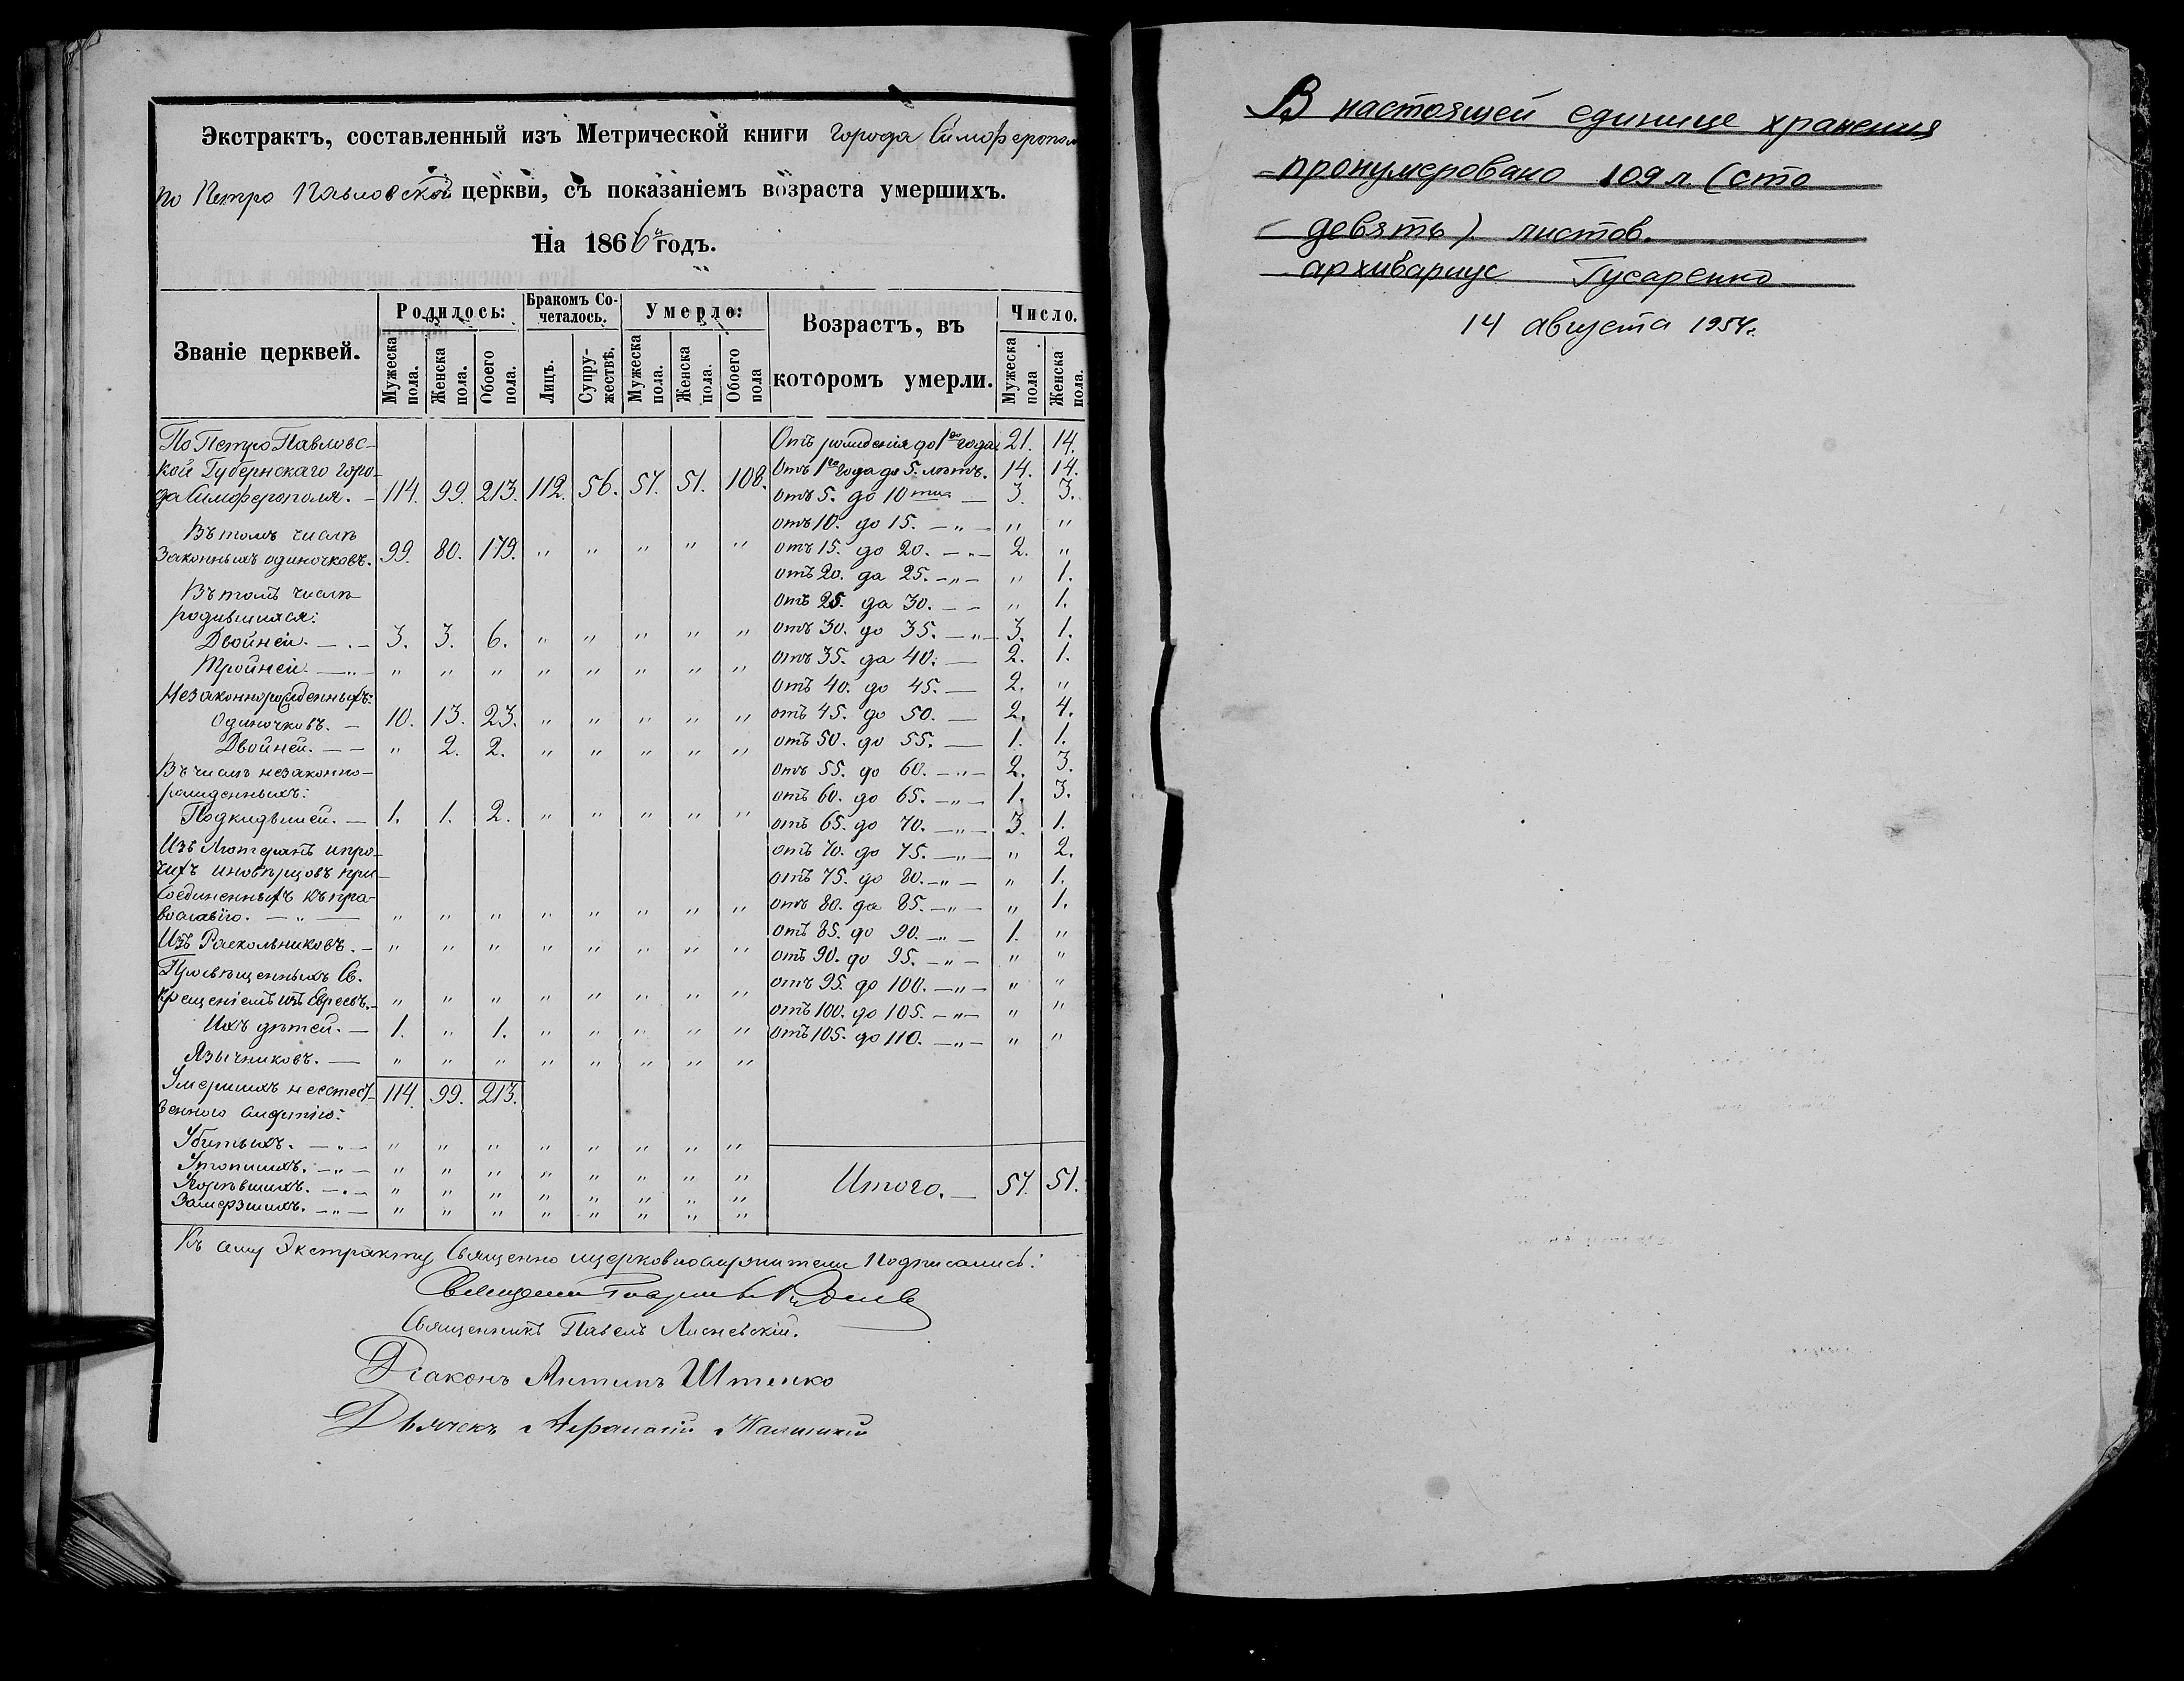 Экстрактъ, составленный изъ Метрической книги города Симферополя
по Петро Павловской церкви, съ показаніемъ возраста умершихъ.
На 1866й годъ.
Званіе церквей. Родилось: Бракомъ Сочеталось. Умерло: Возрастъ, въ которомъ умерли. Число.
Мужеска пола. Женска пола. Обоего пола. Лицъ. Супружествъ. Мужеска пола. Женска пола. Обоего пола Мужеска пола Женска пола.
По Петро Павловс-
кой Губернскаго горо-
да Симферополя. — 114. 99. 213. 112. 56. 57. 51. 108.
Въ томъ числѣ
Законныхъ одиночковъ. 99. 80. 179. " " " " "
Въ томъ числѣ
родившихся:
Двойней. — . — 3. 3. 6. " " " " "
Тройней — " — " " " " " " " "
Незаконнорожденныхъ:
Одиночковъ. — 10. 13. 23. " " " " "
Двойней. — — " 2. 2. " " " " "
Въ числѣ незаконно-
рожденныхъ:
Подкидышей. — 1. 1. 2. " " " " "
Изъ Лютеранъ и про-
чихъ иновѣрцовъ при-
соединенныхъ къ пра-
вославію. — " — " " " " " " " "
Изъ Раскольниковъ. — " " " " " " " "
Просвѣщенныхъ Св.
крещеніемъ изъ Евреевъ. — " " " " " " " "
Ихъ дѣтей. — 1. " 1. " " " " "
Язычниковъ. — " " " " " " " "
Умершихъ неестест-
венного 114. 99. 213.
Убитыхъ. — " — " " " " " " " "
Утопшихъ. — " — " " " " " " " "
Угорѣвшихъ. — . — " " " " " " " "
Замерзшихъ. — " — " " " " " " " "
Отъ рожденія до 1го года. 21. 14.
Отъ 1го года до 5. лѣтъ. 14. 14.
отъ 5. до 10ти — 3. 3.
отъ 10. до 15. — " — " "
отъ 15. до 20. — " — 2. "
отъ 20. да 25. — " — " 1.
отъ 25. да 30. — — " 1.
отъ 30. до 35. — " — 3. 1.
отъ 35. да 40. — 2. 1.
отъ 40. до 45. — 2. "
отъ 45. до 50. — 2. 4.
отъ 50. до 55. — 1. 1.
отъ 55. до 60. — " — 2. 3.
отъ 60. до 65. — " — 1. 3.
отъ 65. до 70. — " — 3. 1.
отъ 70. до 75. — " — " 2.
отъ 75. до 80. — " — " 1.
отъ 80. да 85. — " — " 1.
отъ 85. до 90. — " — 1. "
отъ 90. до 95. — " — " "
отъ 95. до 100. — " — " "
отъ 100. до 105. — " — " "
отъ 105. до 110. — " — " "
Итого. — 57. 51.
Къ сему Экстракту Священно и церковнослужители подписались:
Священникъ
Священникъ Павелъ
Діаконъ Антипъ Штенко
Дьячекъ Афанасій
В настоящей единице хранения
пронумеровано 109 л. (сто
девять) листов.
архивариус Гусаренко
14 августа 1954г.